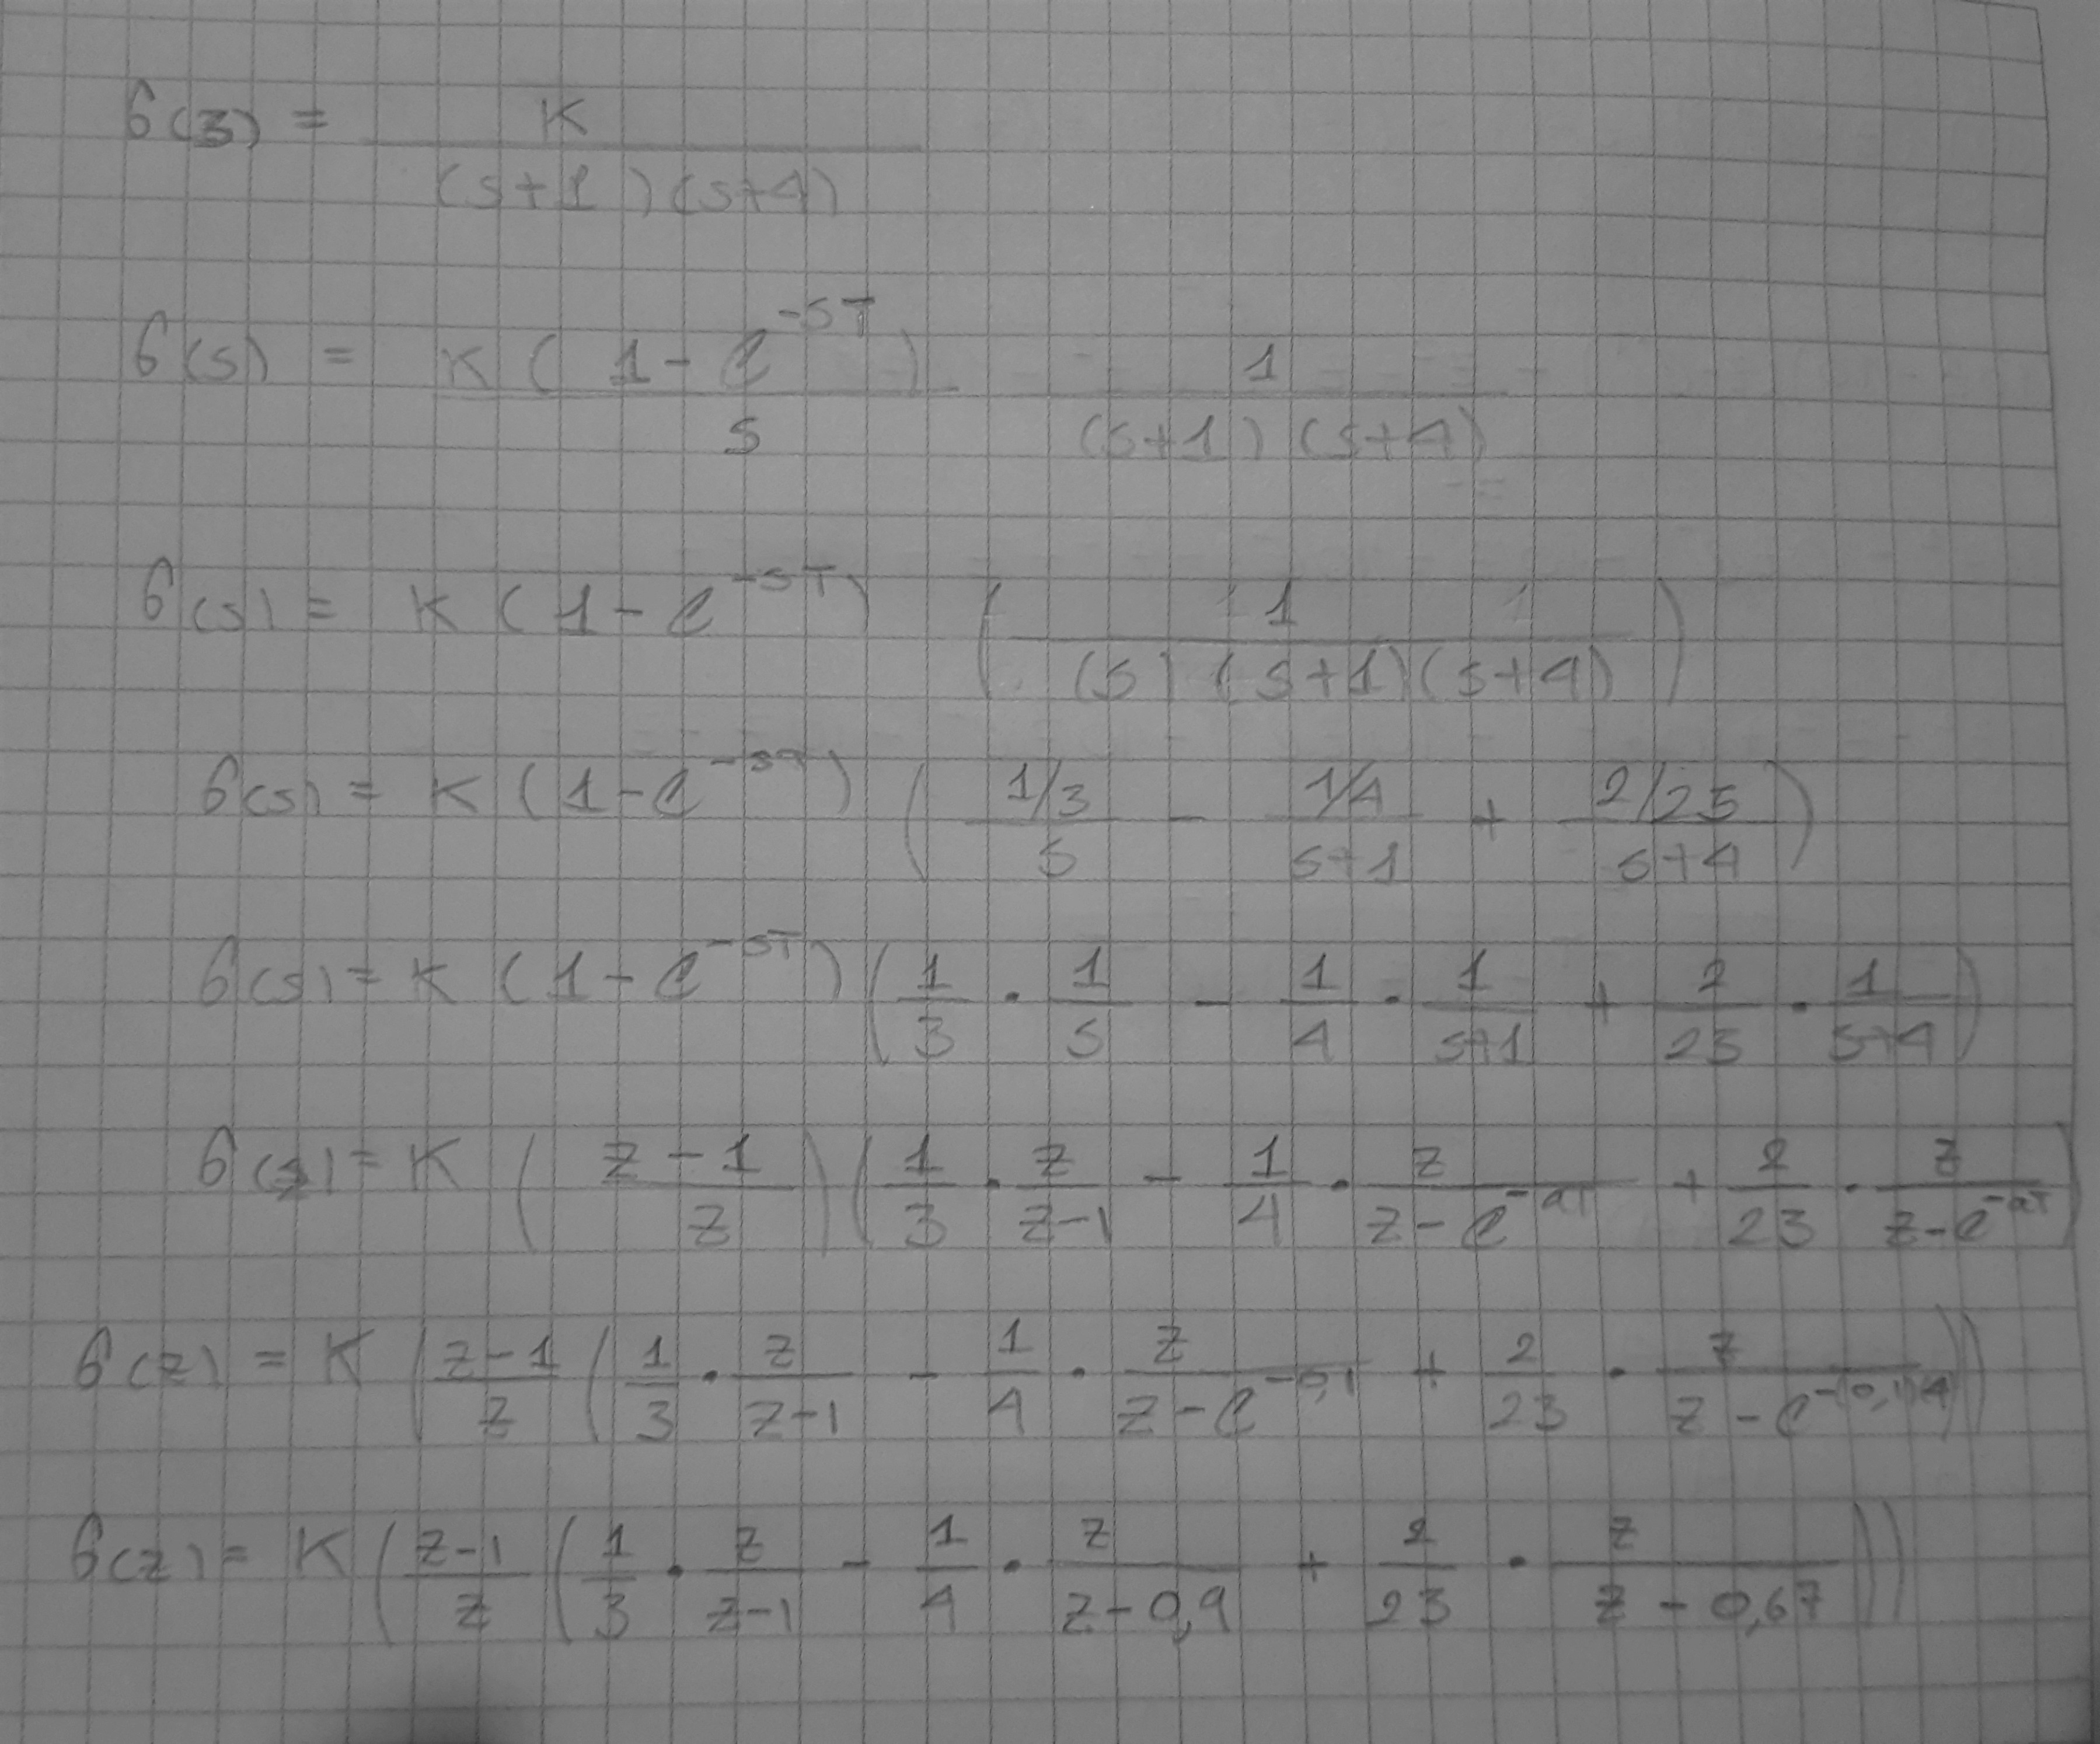 G(s) = K / (s+1)(s+4)
G(s) = K(1-e^-sT) / s 1 / (s+1)(s+4)
G(s) = K(1-e^-sT) (1 / (s)(s+1)(s+4))
G(s) = K(1-e^-sT) ((1/3)/s - (1/4)/(s+1) + (2/25)/(s+4))
G(s) = K(1-e^-sT) (1/3 · 1/s - 1/4 · 1/(s+1) + 2/23 · 1/(s+4))
G(z) = K ((z-1)/z) (1/3 · z/(z-1) - 1/4 · z/(z-e^-aT) + 2/23 · z/(z-e^-aT))
G(z) = K ((z-1)/z (1/3 · z/(z-1) - 1/4 · z/(z-e^-0,1) + 2/23 · z/(z-e^-(0,1)4)))
G(z) = K ((z-1)/z (1/3 · z/(z-1) - 1/4 · z/(z-0,9) + 2/23 · z/(z-0,67)))